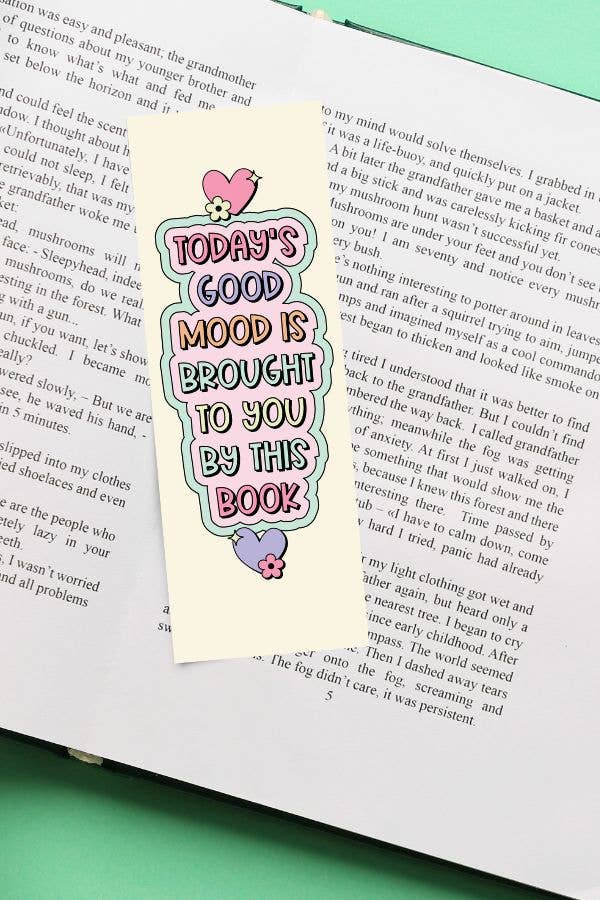 TODAY'S
GOOD
MOOD IS
BROUGHT
TO YOU
BY THIS
BOOK
was easy and pleasant; the grandmother
of questions about my younger brother and
to know what's what and fed me
set below the horizon and it
could feel the scent
I thought about
«Unfortunately, I have
could not sleep, I felt
that was my
grandfather woke me
mushrooms will
face: - Sleepyhead,
mushrooms, do we
in the forest. What
with a gun...
if you want, let's show
chuckled. I became
slowly, – But we are
see, he waved his hand, -
in 5 minutes.
slipped into my clothes
shoelaces and even
are the people who
lazy in your
I wasn't worried
all problems
to my mind would solve themselves. I grabbed
it was a life-buoy, and quickly put on a jacket.
A bit later the grandfather gave me a basket and
a big stick and was carelessly kicking fir cones
my mushroom hunt wasn't successful yet.
Mushrooms are under your feet and you don't see
you! I am seventy and notice every
bush.
nothing interesting to potter around in leaves
and ran after a squirrel trying to aim,
and imagined myself as a cool commando
began to thicken and looked like smoke on
tired I understood that it was better to find
back to the grandfather. But I couldn't find
the way back. I called grandfather
meanwhile the fog was getting
of anxiety. At first I just walked on, I
something that would show me the
because I knew this forest and there
interesting there. Time passed by
– «I have to calm down, come
hard I tried, panic had already
my light clothing got wet and
again, but heard only a
nearest tree. I began to cry
since early childhood. After
The world seemed
Then I dashed away tears
onto the fog, screaming and
The fog didn't care, it was persistent.
5